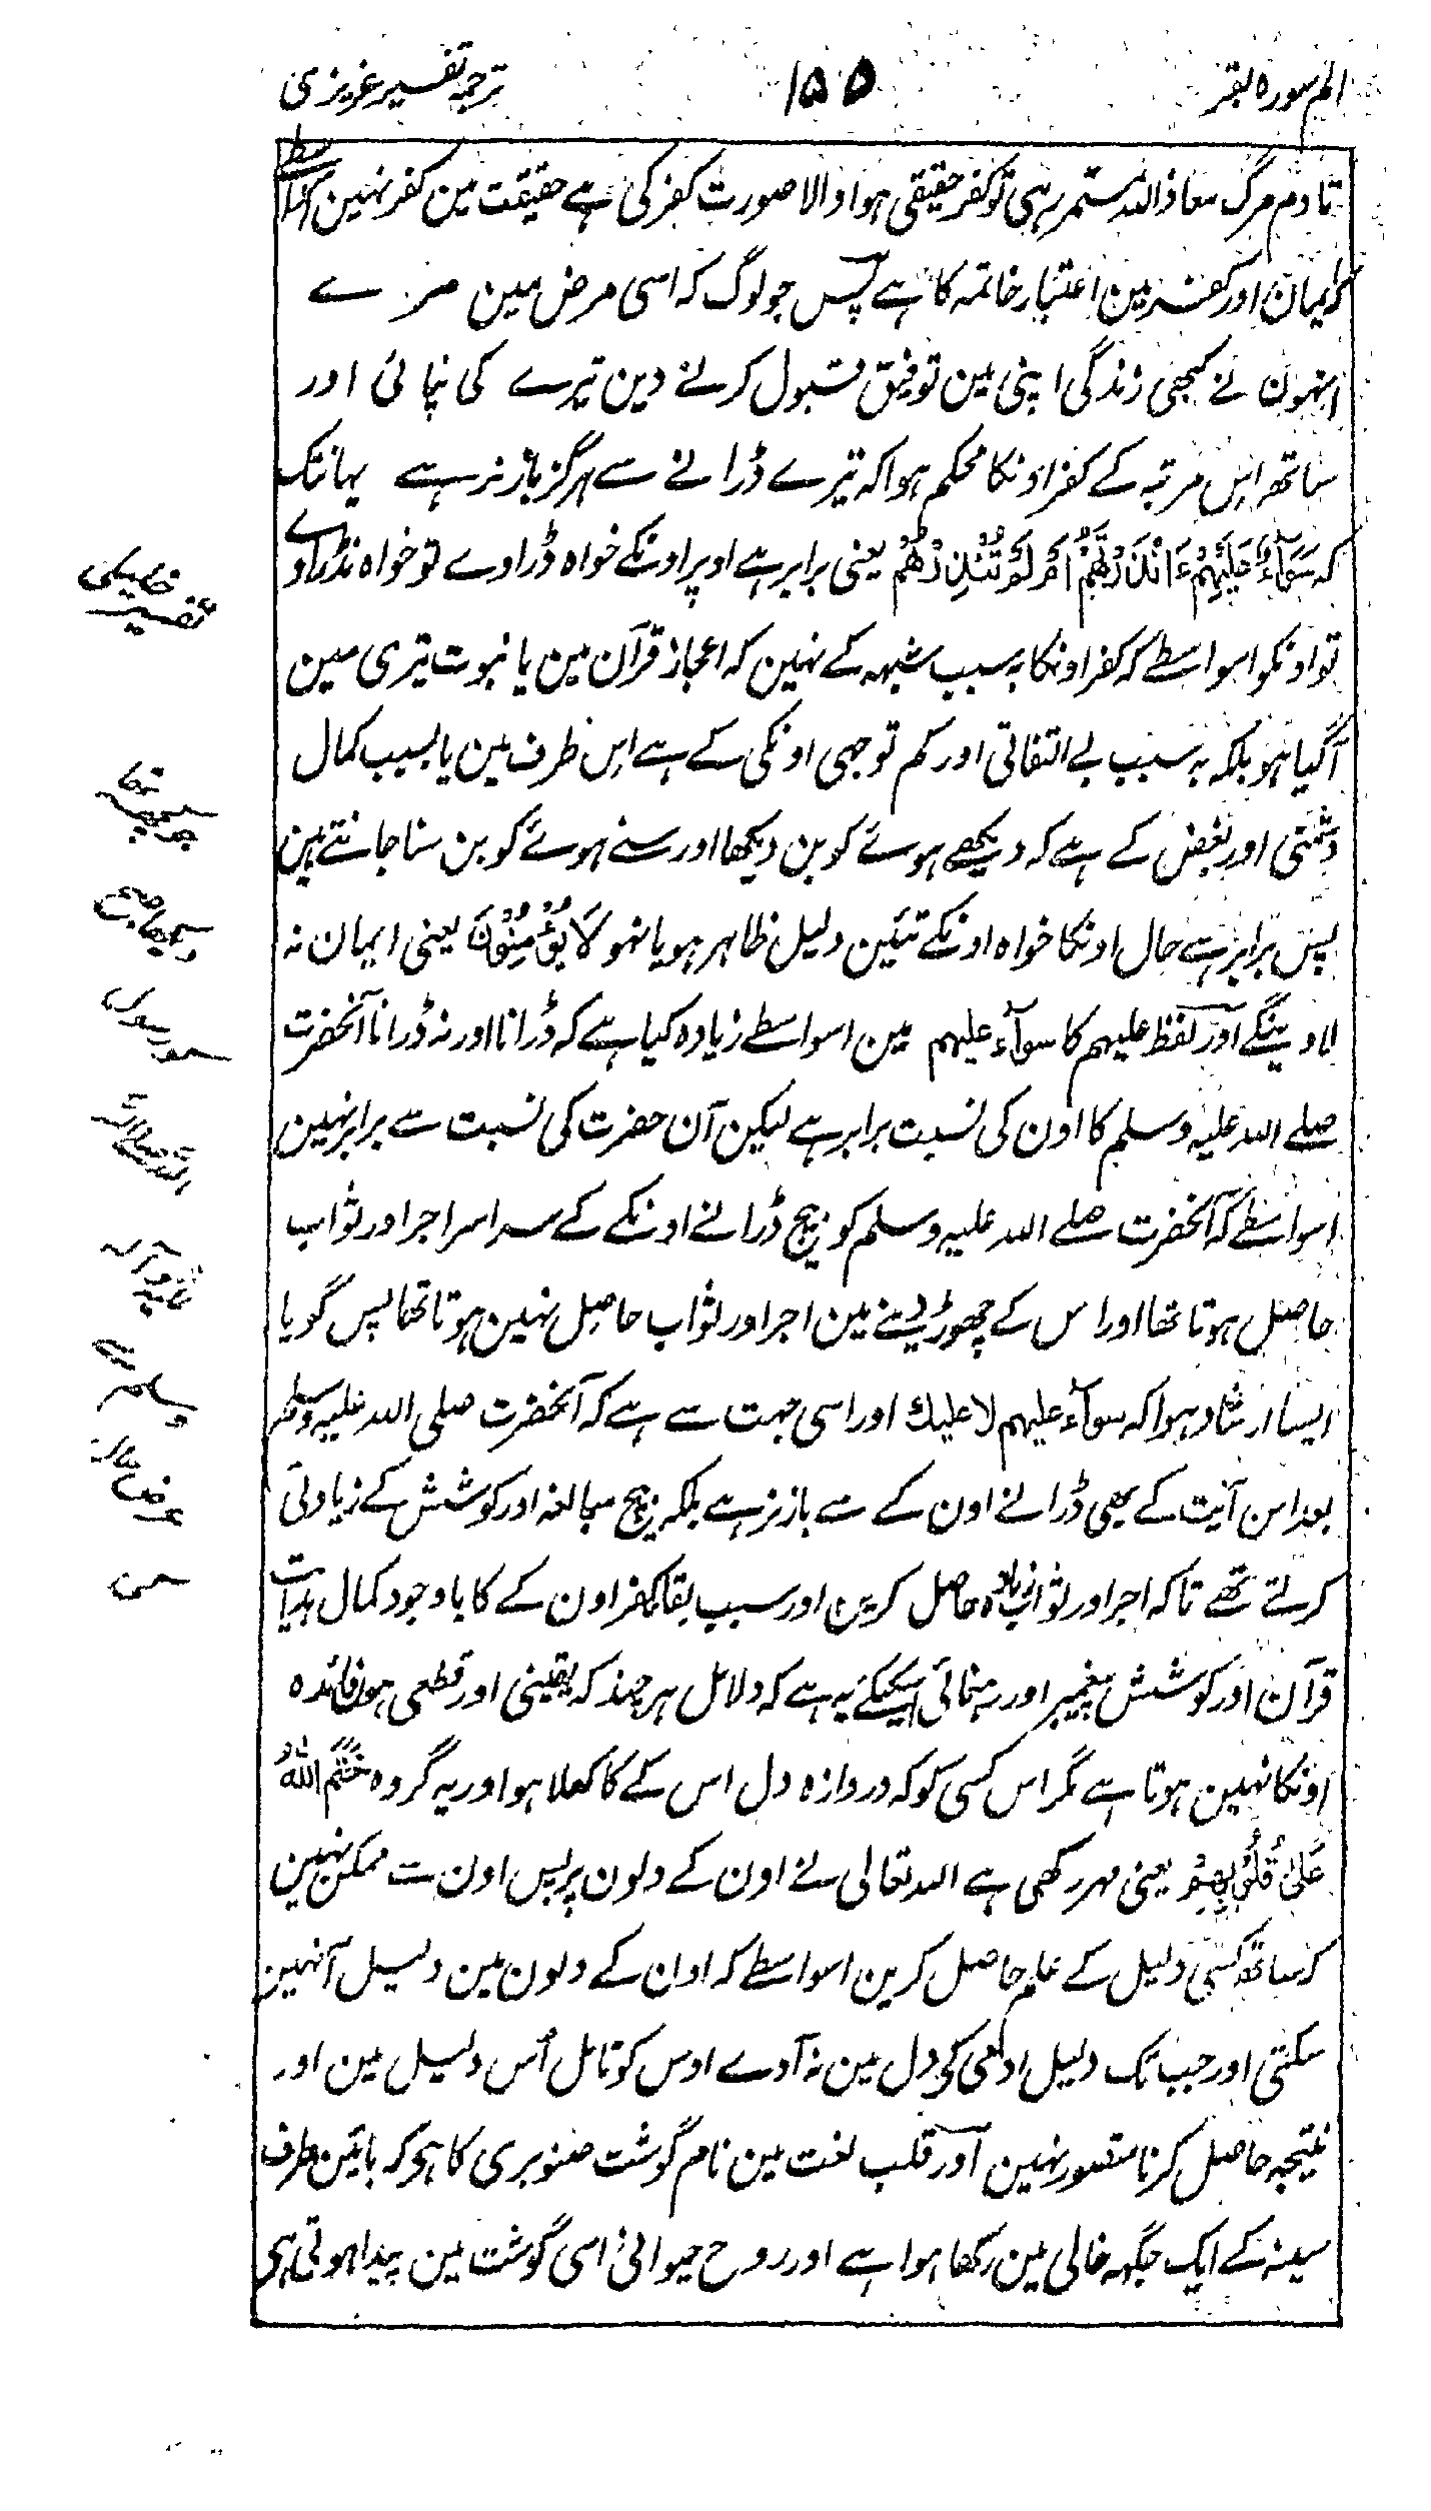 الم سورہ بقر
۱۵۵
ترجمہ تفسیر عزیزی
تا دم مرگ معاذ اللہ مستمر رہی تو کفر حقیقی ہوا والا صورت کفر کی ہے حقیقت مین کفر نہین اسواسطے
کہ ایمان اور کفر مین اعتبار خاتمہ کا ہے پس جو لوگ کہ اسی مرض مین مرے
انہون نے کبھی زندگی اپنی مین توفیق قبول کرنے دین تیرے کی نپائی اور
ساتھ اس مرتبہ کے کفر اونکا محکم ہوا کہ تیرے ڈرانے سے ہرگز باز نرہے یہانتک
کہ سَوَآءٌ عَلَيْهِمْ ءَاَنْذَرْتَهُمْ اَمْ لَمْ تُنْذِرْهُمْ یعنی برابر ہے اوپر اونکے خواہ ڈراوے تو خواہ نڈراوے
تو اونکو اسواسطے کہ کفر اونکا بہ سبب شبہہ کے نہین کہ اعجاز قرآن مین یا نبوت تیری مین
آگیا ہو بلکہ بہ سبب بے التفاتی اور کم توجہی اونکی کے ہے اس طرف مین یا بسبب کمال
دشمنی اور بغض کے ہے کہ دیکھے ہوئے کو بن دیکھا اور سنے ہوئے کو بن سنا جانتے ہین
پس برابر ہے حال اونکا خواہ اونکے تئین دلیل ظاہر ہو یا نہو لَا يُؤْمِنُوْنَ یعنی ایمان نہ
لاوینگے اور لفظ علیہم کا سوآء علیہم مین اسواسطے زیادہ کیا ہے کہ ڈرانا اور نہ ڈرانا آنحضرت
صلے اللہ علیہ وسلم کا اون کی نسبت برابر ہے لیکن آن حضرت کی نسبت سے برابر نہین
اسواسطے کہ آنحضرت صلے اللہ علیہ وسلم کو بیچ ڈرانے اونکے کے سراسر اجر اور ثواب
حاصل ہوتا تھا اور اس کے چھوڑ دینے مین اجر اور ثواب حاصل نہین ہوتا تھا پس گویا
ایسا ارشاد ہوا کہ سوآء علیہم لا علیك اور اسی جہت سے ہے کہ آنحضرت صلی اللہ علیہ وسلم
بعد اس آیت کے بھی ڈرانے اون کے سے باز نرہے بلکہ بیچ مبالغہ اور کوشش کے زیادتی
کرتے تھے تاکہ اجر اور ثواب زیادہ حاصل کرین اور سبب بقا کفر اون کے کا باوجود کمال ہدایت
قرآن اور کوشش پیغمبر اور رہنمائی اسکے کے یہ ہے کہ دلائل ہرچند کہ یقینی اور قطعی ہون فائدہ
اونکا نہین ہوتا ہے مگر اس کسی کو کہ دروازہ دل اس کے کا کھلا ہو اور یہ گروہ خَتَمَ اللّٰهُ
عَلٰى قُلُوْبِهِمْ یعنی مہر رکھی ہے اللہ تعالی نے اون کے دلون پر پس اون سے ممکن نہین
کہ ساتھ کسی دلیل کے علم حاصل کرین اسواسطے کہ اون کے دلون مین دلیل آ نہین
سکتی اور جب تک دلیل آدمی کی دل مین نہ آوے اوس کو تامل اُس دلیل مین اور
نتیجہ حاصل کرنا متصور نہین اور قلب لغت مین نام گوشت صنوبری کا ہی کہ بائین طرف
سینہ کے ایک جگہہ خالی مین رکھا ہوا ہے اور روح حیوانی اسی گوشت مین پیدا ہوتی ہی